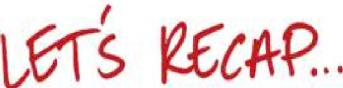 LET'S RECAP...